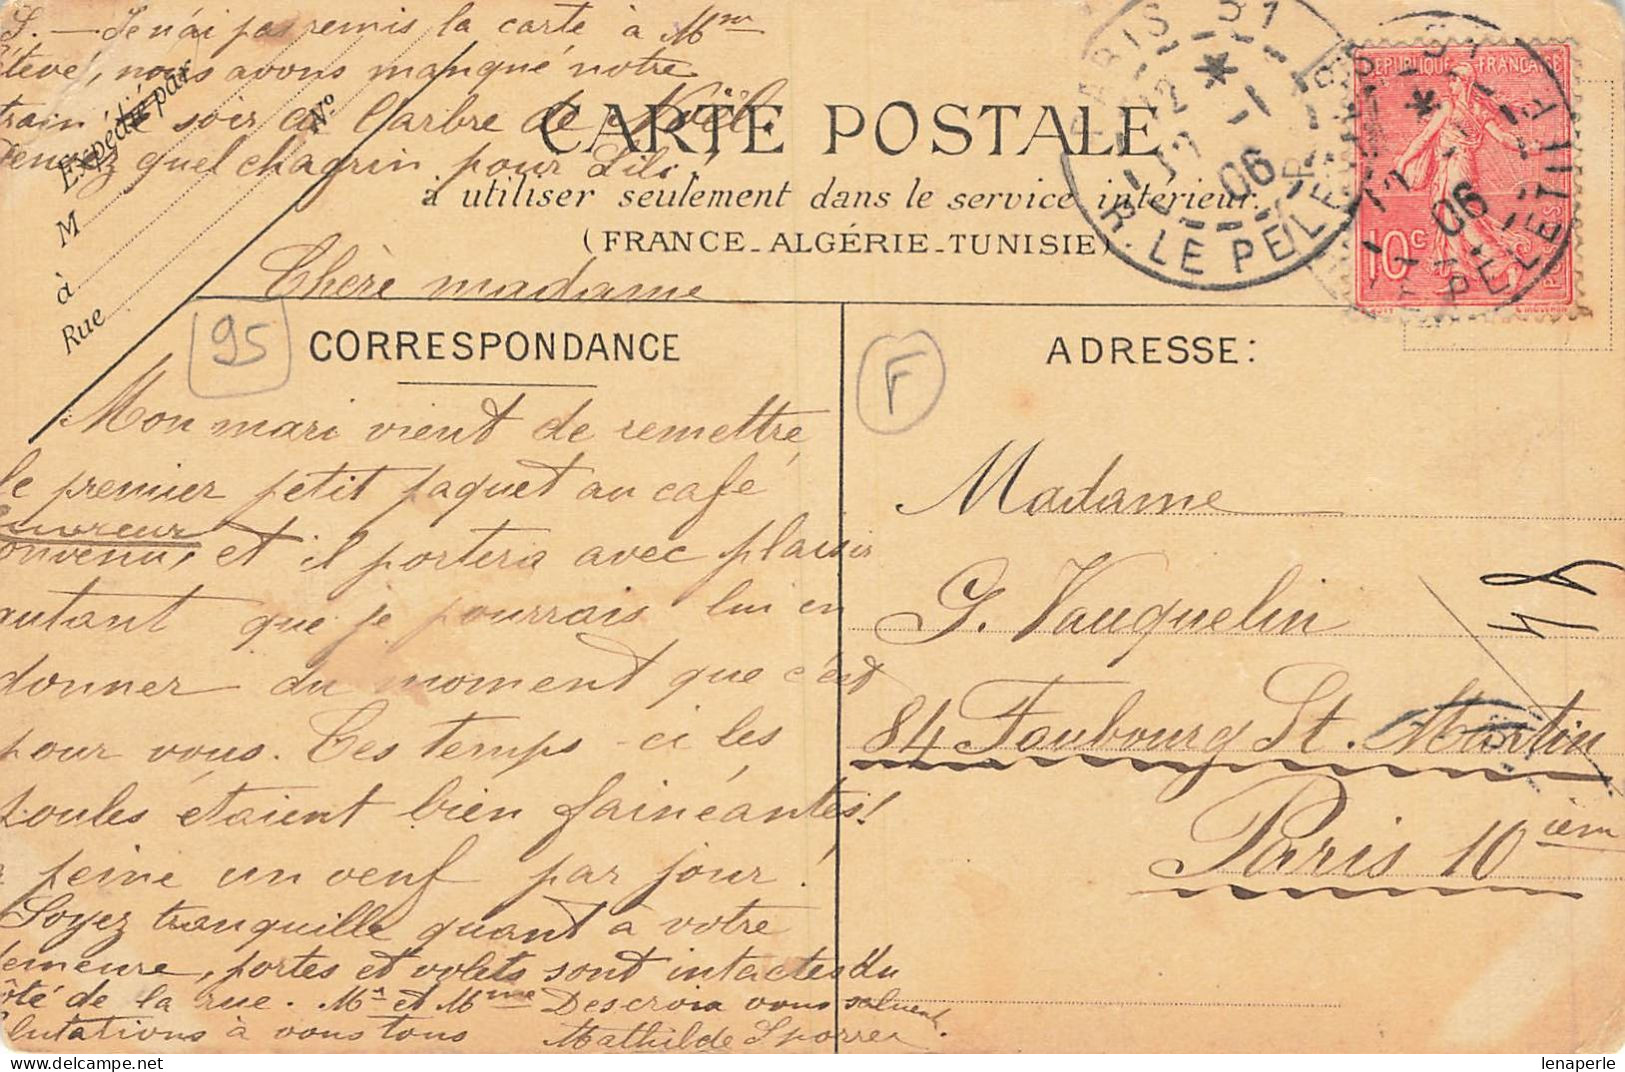 S. — Je n'ai pas remis la carte à Mme
nous avons manqué notre
train ce soir là l'arbre de Noël
quel chagrin pour Lili!
Expédié par
No
M
à
Rue
CARTE POSTALE
à utiliser seulement dans le service intérieur.
(FRANCE-ALGÉRIE-TUNISIE)
PARIS
12
06
R. LE PELETIER
REPUBLIQUE FRANÇAISE
10c
POSTES
Chère madame
95
F
CORRESPONDANCE
Mon mari vient de remettre
le premier petit paquet au café
convenu, et il portera avec plaisir
autant que je pourrais lui en
donner du moment que c'est
pour vous. Ces temps-ci les
poules étaient bien fainéantes!
à peine un oeuf par jour!
Soyez tranquille quant à votre
demeure, portes et volets sont intactes du
côté de la rue. Mr et Mme Descroix vous saluent.
salutations à vous tous Mathilde Sporrer
ADRESSE:
Madame
G. Vauquelin
84 Faubourg St. Martin
Paris 10ième
48
lenaperle